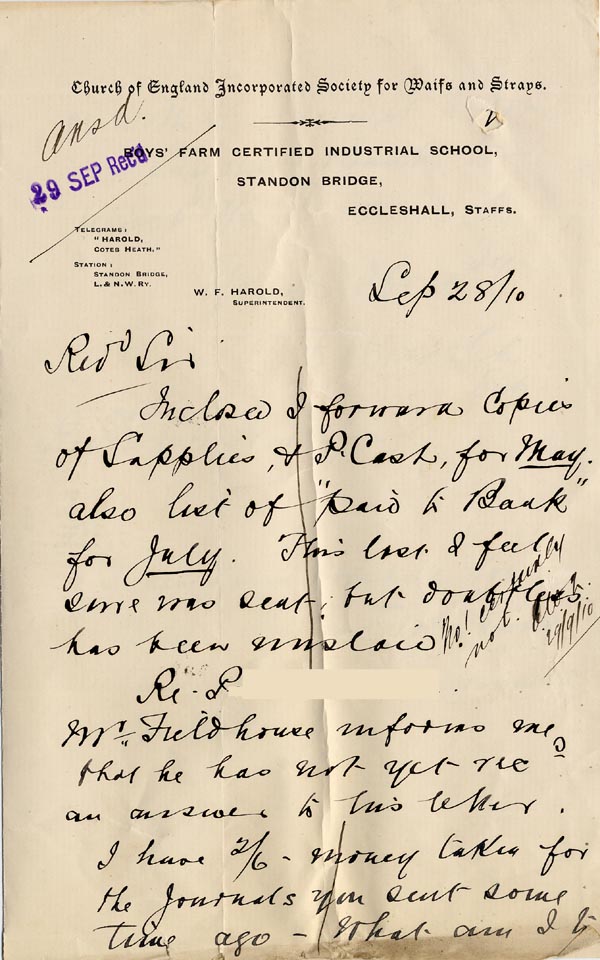 Church of England Incorporated Society for Waifs and Strays.
Ansd.
29 SEP Recd
BOYS' FARM CERTIFIED INDUSTRIAL SCHOOL,
STANDON BRIDGE,
ECCLESHALL, STAFFS.
TELEGRAMS:
"HAROLD,
COTES HEATH."
STATION:
STANDON BRIDGE,
L. & N. W. RY.
W. F. HAROLD,
SUPERINTENDENT.
Sep 28/10
Revd Sir
Inclosed I forward Copies
of Supplies, & P. Cash, for May.
also list of "paid to Bank"
for July. This last I feel
sure was sent, but doubtless
has been mislaid
No! certainly
not.
29/9/10
Re. P
Mr. Fieldhouse informs me
that he has not yet recd
an answer to his letter.
I have 2/6 - money taken for
the Journals you sent some
time ago - What am I to